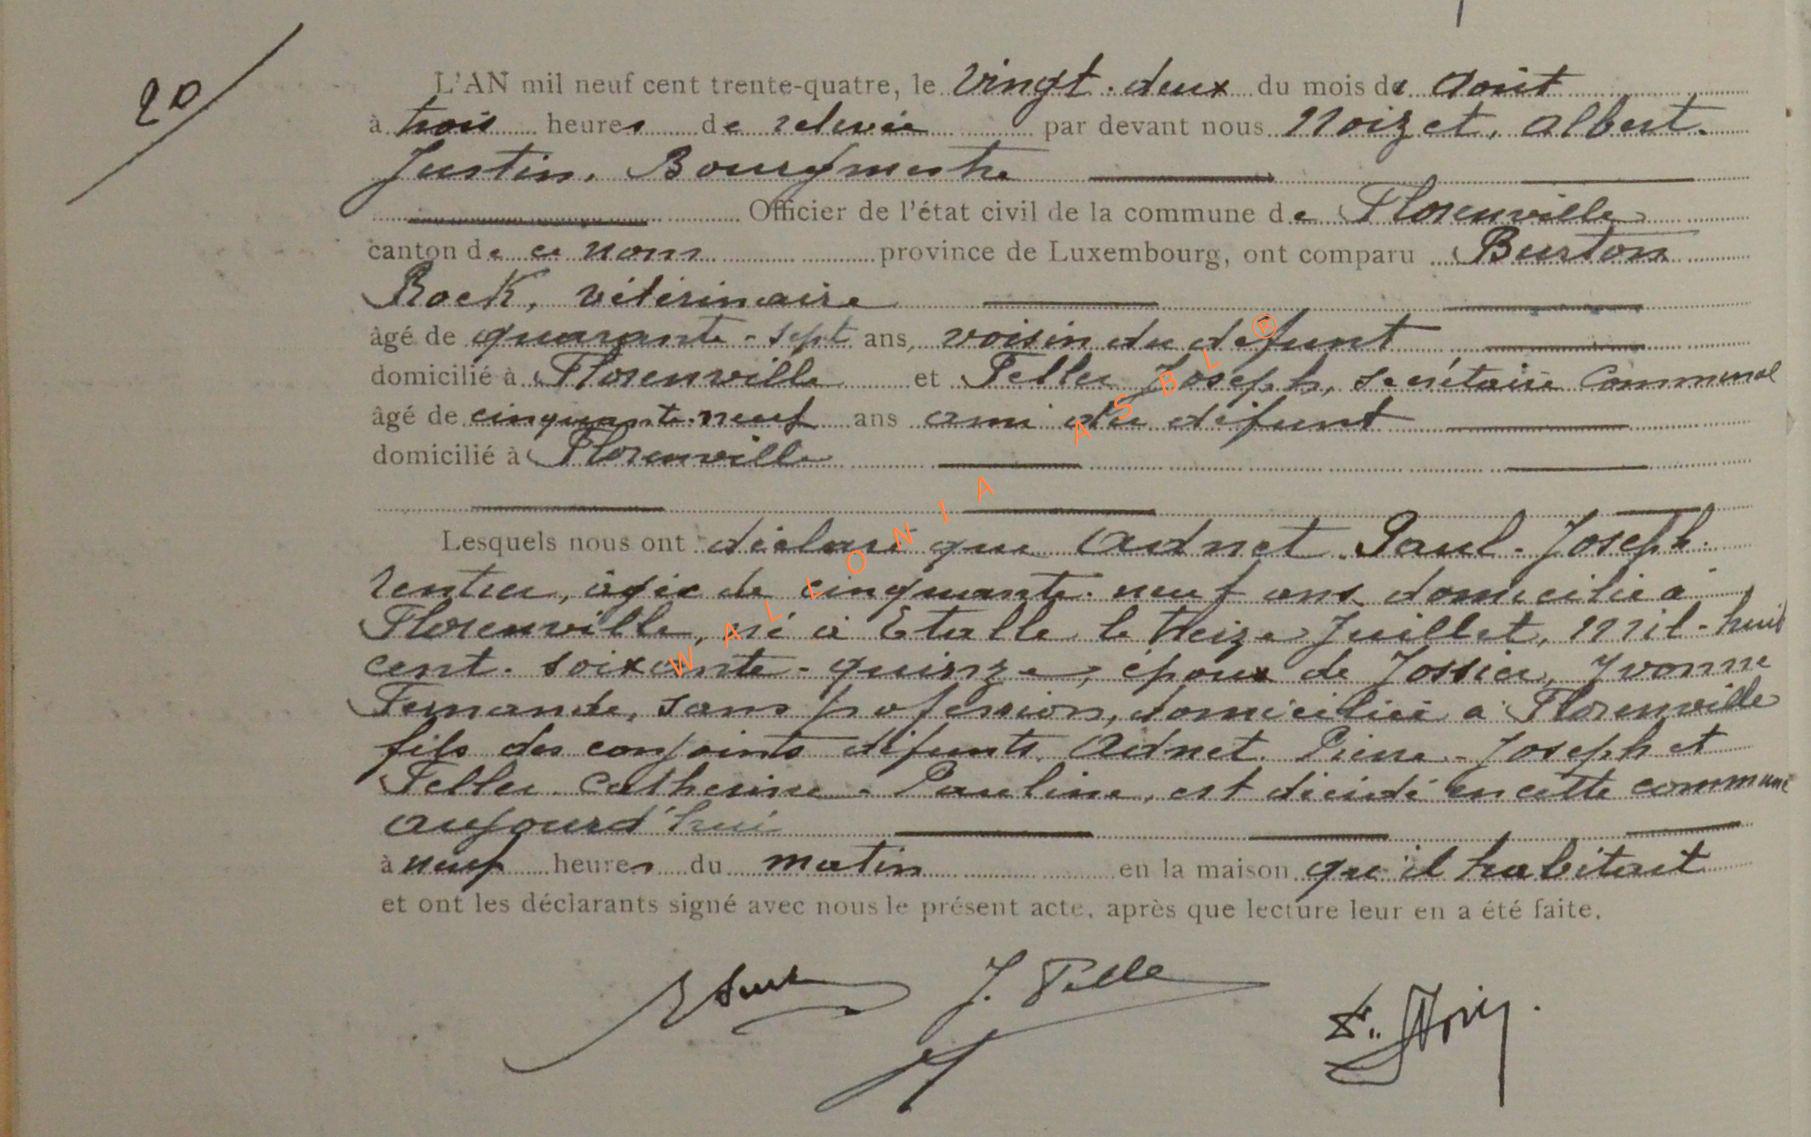 20
L'AN mil neuf cent trente-quatre, le vingt-deux du mois de Août
à trois heures de relevée par devant nous Noizet, Albert.
Justin, Bourgmestre
Officier de l'état civil de la commune de Florenville
canton de ce nom province de Luxembourg, ont comparu Burton
Rock, vétérinaire
âgé de quarante-sept ans, voisin du défunt
domicilié à Florenville et Feller Joseph, secrétaire Communal
âgé de cinquante-neuf ans ami du défunt
domicilié à Florenville
Lesquels nous ont déclaré que Adnet Paul-Joseph
rentier, âgée de cinquante-neuf ans domicilié à
Florenville, né à Etalle le treize Juillet, mil-huit
cent-soixante-quinze, époux de Jossier, Yvonne
Fernande, sans profession, domiciliée à Florenville
fils des conjoints défunts Adnet Pierre-Joseph et
Feller Catherine-Pauline, est décédé en cette commune
aujourd'hui
à neuf heures du matin en la maison qu'il habitait
et ont les déclarants signé avec nous le présent acte, après que lecture leur en a été faite.
J. Felle
WALLONIA ASBL ®